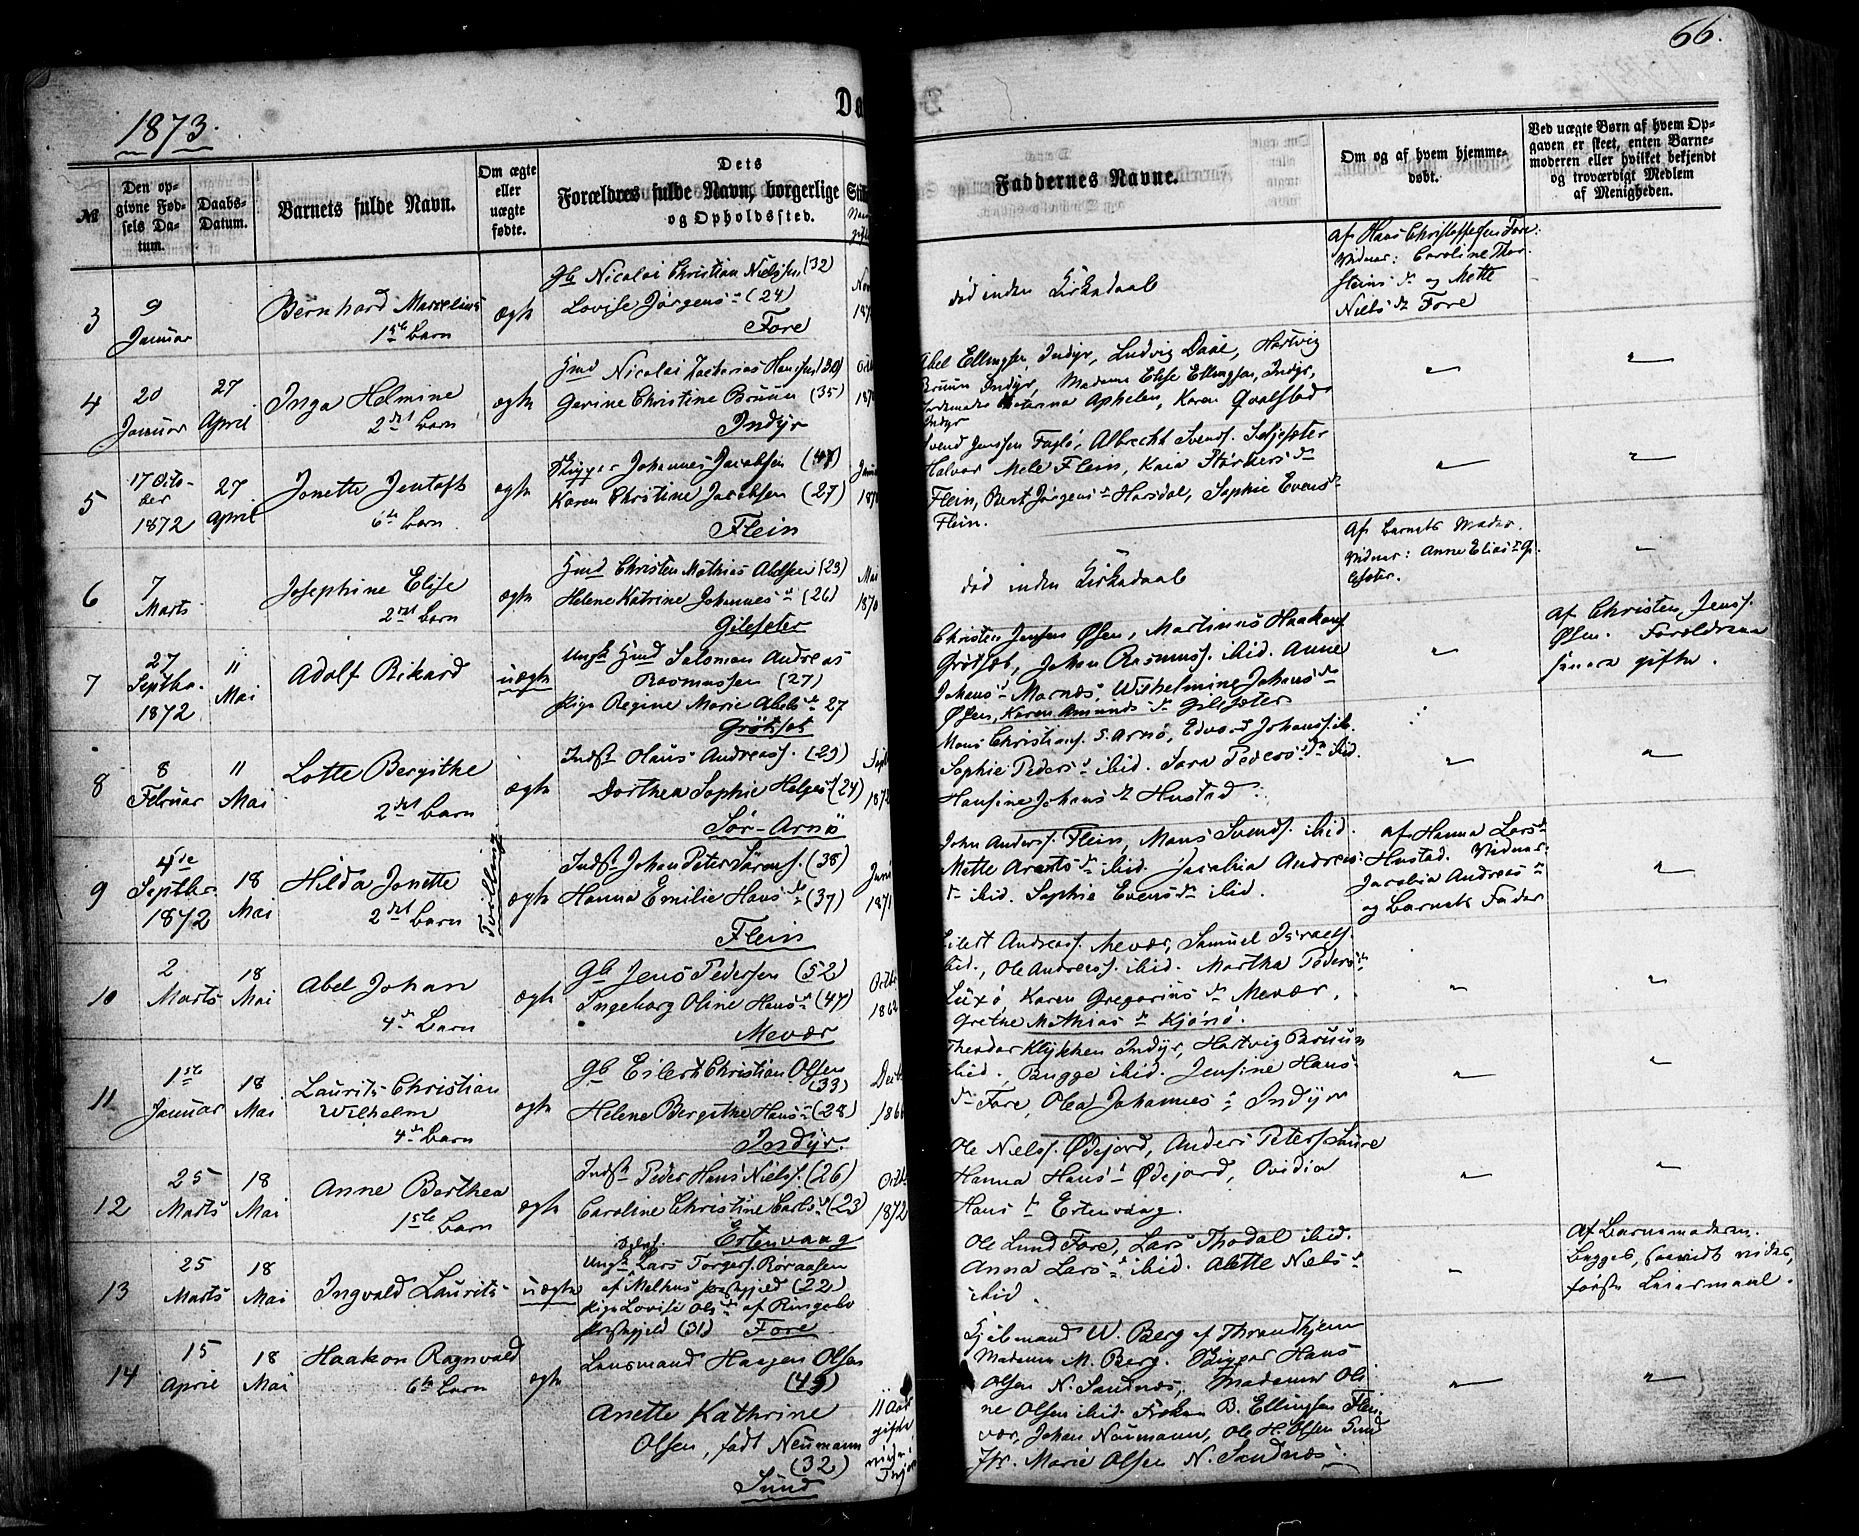 66.
1873.
Da
№
Den op-
givne Fød-
sels Da-
tum.
Daabs-
Datum.
Barnets fulde Navn.
Om ægte
eller
uægte
fødte.
Dets
Forældres fulde Navn, borgerlige
og Opholdssted.
Faddernes Navne.
Om og af hvem hjemme-
døbt.
Ved uægte Børn af hvem Op-
gaven er skeet, enten Barne-
moderen eller hvilket bekjendt
og troværdigt Medlem
af Menigheden.
3
9
Januar
Bernhard Marselius
1ste barn
ægte
Gb Nicolai Christian Nielssen (32)
Lovise Jørgens (24)
Fore
død inden Kirkedaab
af Hans Christoffersen Fore.
Vidner: Caroline Thor-
steins dr og Mette
Niels dr Fore
4
20
Januar
27
April
Inga Helmine
2det barn
ægte
Gmd Nicolai Zacharias Hansen (30)
Gerine Christine Bruun (35)
Indyr
Abel Ellingsen, Indyr, Ludvig Daae, Hartvig
Bruun Indyr, Madame Elise Ellingsen, Indyr,
Catarina Aphelen, Karen Qvalstad
Indyr
5
17 Octo-
ber
1872
27
April
Jonette Jentoft
6te barn
ægte
Johannes Jacobsen (47)
Karen Christine Jacobsen (27)
Flein
Svend Jenssen Fuglø, Albrecht Svends. Selsæter
Halvor Mele Flein, Kaia Størkers dr
Flein, Berit Jørgens dr Harsdal, Sophie Evens dr
Flein.
6
7
Marts
Josephine Elise
2det barn
ægte
Gmd Christen Mathias Abelsen (23)
Helene Katrine Johannes dr (26)
Gilesæter
Mai
1870
død inden Kirkedaab
Af barnets Moder.
Vidner: Anne Elias dr Gi-
lesæter.
7
27
Septbr.
1872
11
Mai
Adolf Rikard
uægte
Ungk Gmd Salomon Andreas
Rasmussen (27)
Pige Regine Marie Abels dr 27
Grøtset
Christen Jensen Øsen, Martinus Haakons
Grøtset, Johan Rasmuss. ibid. Anne
Johans dr Marnæs, Wilhelmine Johans dr
Øsen, Karen Amunds dr Gilesæter
af Christen Jenss.
Øsen. Forældrene
senere gifte.
8
8
Februar
11
Mai
Lotte Bergithe
2det barn
ægte
Indst Hans Andreass. (29)
Dorthea Sophie Helges dr (24)
Sør-Arnø
Septb
1872
Mons Christians. S. Arnø, Edvard Johanss. ib.
Sophie Peders dr ibid. Sara Peders dr ibid.
Hansine Johans dr Hustad.
9
4de
Septbr.
1872
18
Mai
Hilda Jonette
2det barn
Tvilling
ægte
Indst Johan Peter Sørens. (38)
Hanna Emilie Hans dr (37)
Flein
Juni
1871
John Anderss. Flein, Mons Svends. ibid.
Mette Arents dr ibid. Jacobia Andreas
dr ibid. Sophie Evens dr ibid.
af Hanna Lars dr
Hustad. Vidner:
Jacobia Andreas dr
og Barnets Fader
10
2
Marts
18
Mai
Abel Johan
4de barn
ægte
Gb Jens Pedersen (52)
Ingeborg Oline Hans dr (47)
Mevær
Octbr
1862
Eilert Andreass. Mevær, Samuel Israels.
ibid., Ole Andreass. ibid. Martha Peders dr
Luxø, Karen Gregorius dr Mevær,
Grethe Mathias dr Kjønø.
11
1ste
Januar
18
Mai
Laurits Christian
Wilhelm
4de barn
ægte
Gb Eilert Christian Olsen
(33)
Helene Bergithe Hans dr (28)
Indyr.
Theodor Klykken Indyr, Hartvig Bruun
ibid., Bugge ibid. Jensine Hans-
dr Fore, Olea Johannes dr Indyr
12
25
Marts
18
Mai
Anne Berthea
1ste barn
ægte
Indst Peder Hans Niels. (26)
Caroline Christine Carls dr (23)
Ertenvaag
Octbr
1872
Ole Niels. Ødejord, Anders Peters. Saure
Hanna Hans dr Ødejord, Ovidia
Hans dr Ertenvaag.
13
25
Marts
18
Mai
Ingvald Laurits
uægte
Ungk Lars Torgers. Røraasen
af Melhus præstegjeld (22)
Pige Lovise Ols dr af Ringebo
præstegjeld (31) Fore
Ole Lund Fore, Lars Thodal ibid.
Anna Lars dr ibid. Alette Niels dr
ibid.
Af Barnemoderen.
Begges, saavidt vides,
første Leiermaal.
14
15
April
18
Mai
Haakon Ragnvald
6te barn
ægte
Lensmand Haagen Olsen
(49)
Anette Kathrine
Olsen, født Neumann
(32)
Sund
11 Aar
gifte
Kjøbmand W. Berg af Throndhjem
Madame M. Berg. Hans
Olsen N. Sandnæs, Madame Oli-
ne Olsen ibid. Frøken B. Ellingsen Flein-
vær, Johan Neumann, Ole H. Olsen Sund
Marie Olsen N. Sandnæs.